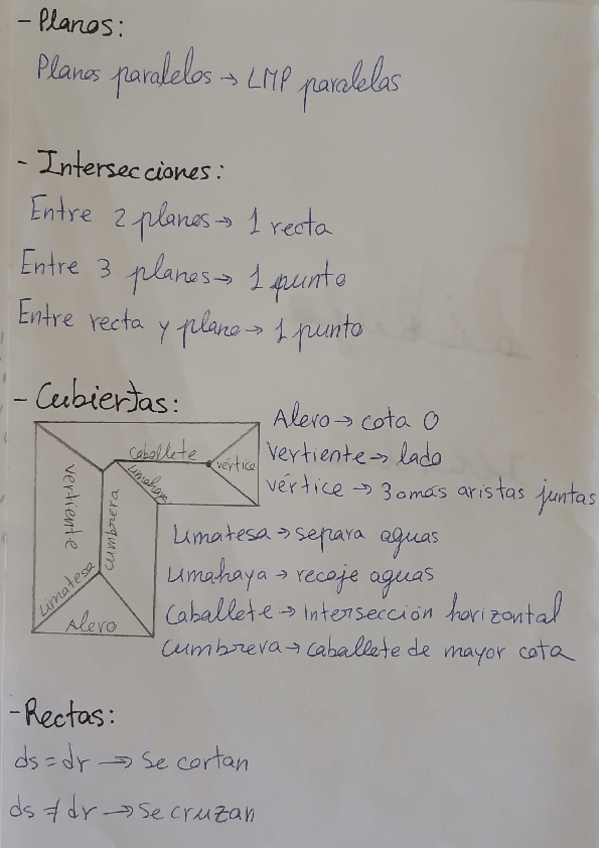 - Planos:
Planos paralelos → LMP paralelas
- Intersecciones:
Entre 2 planos → 1 recta
Entre 3 planos → 1 punto
Entre recta y plano → 1 punto
- Cubiertas:
Alero → cota 0
Vertiente → lado
vértice → 3 o más aristas juntas
Limatesa → separa aguas
Limahaya → recoje aguas
Caballete → Intersección horizontal
Cumbrera → caballete de mayor cota
caballete
vértice
limahaya
vertiente
cumbrera
Limatesa
Alero
- Rectas:
ds = dr → Se cortan
ds ≠ dr → Se cruzan